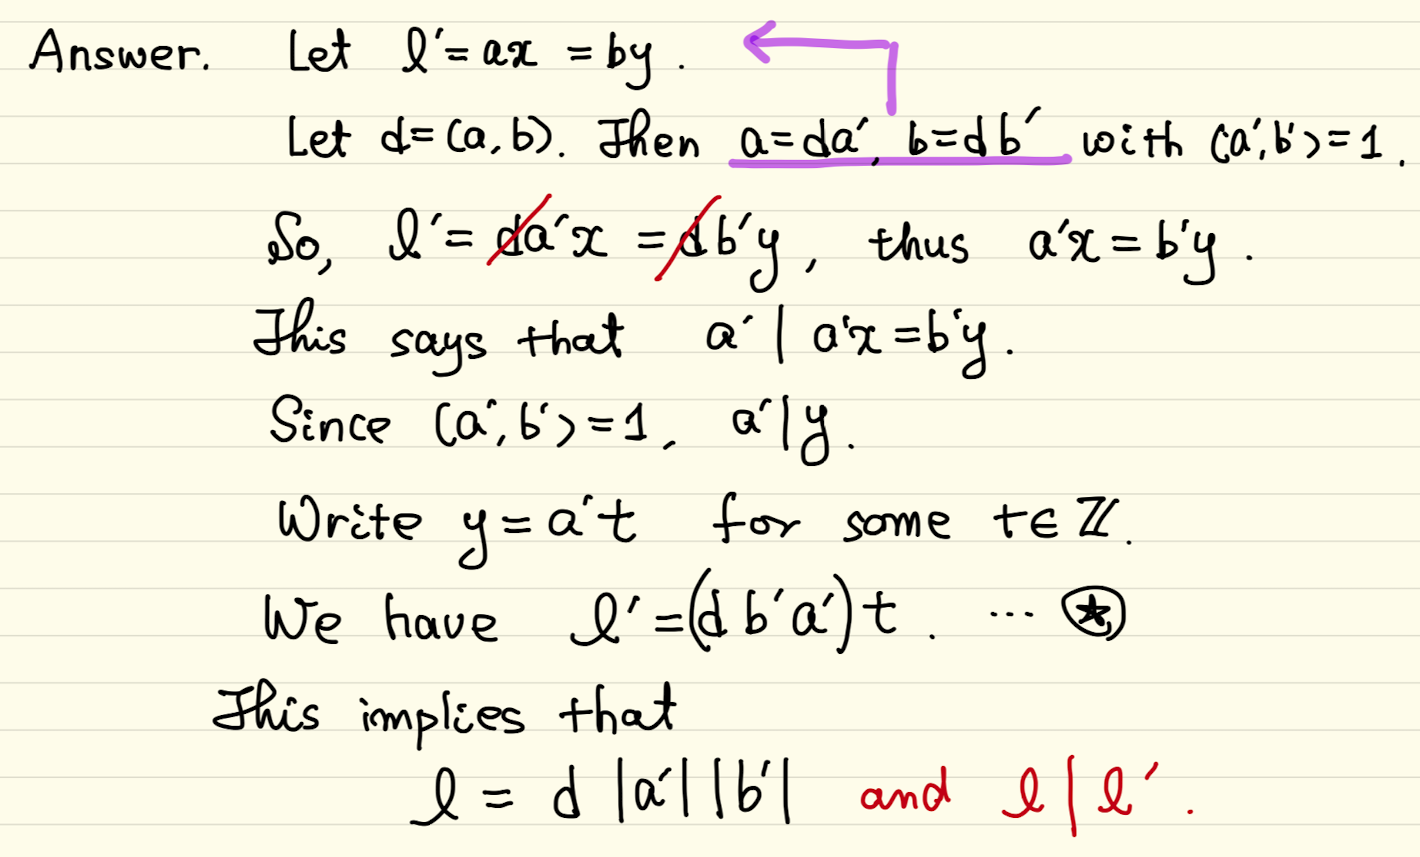 Answer. Let l′ = ax = by.
Let d = (a, b). Then a = da′, b = db′ with (a′, b′) = 1.
So, l′ = da′x = db′y, thus a′x = b′y.
This says that a′ | a′x = b′y.
Since (a′, b′) = 1, a′ | y.
Write y = a′t for some t ∈ ℤ.
We have l′ = (d b′a′) t. ... ⍟
This implies that
l = d |a′| |b′| and l | l′.